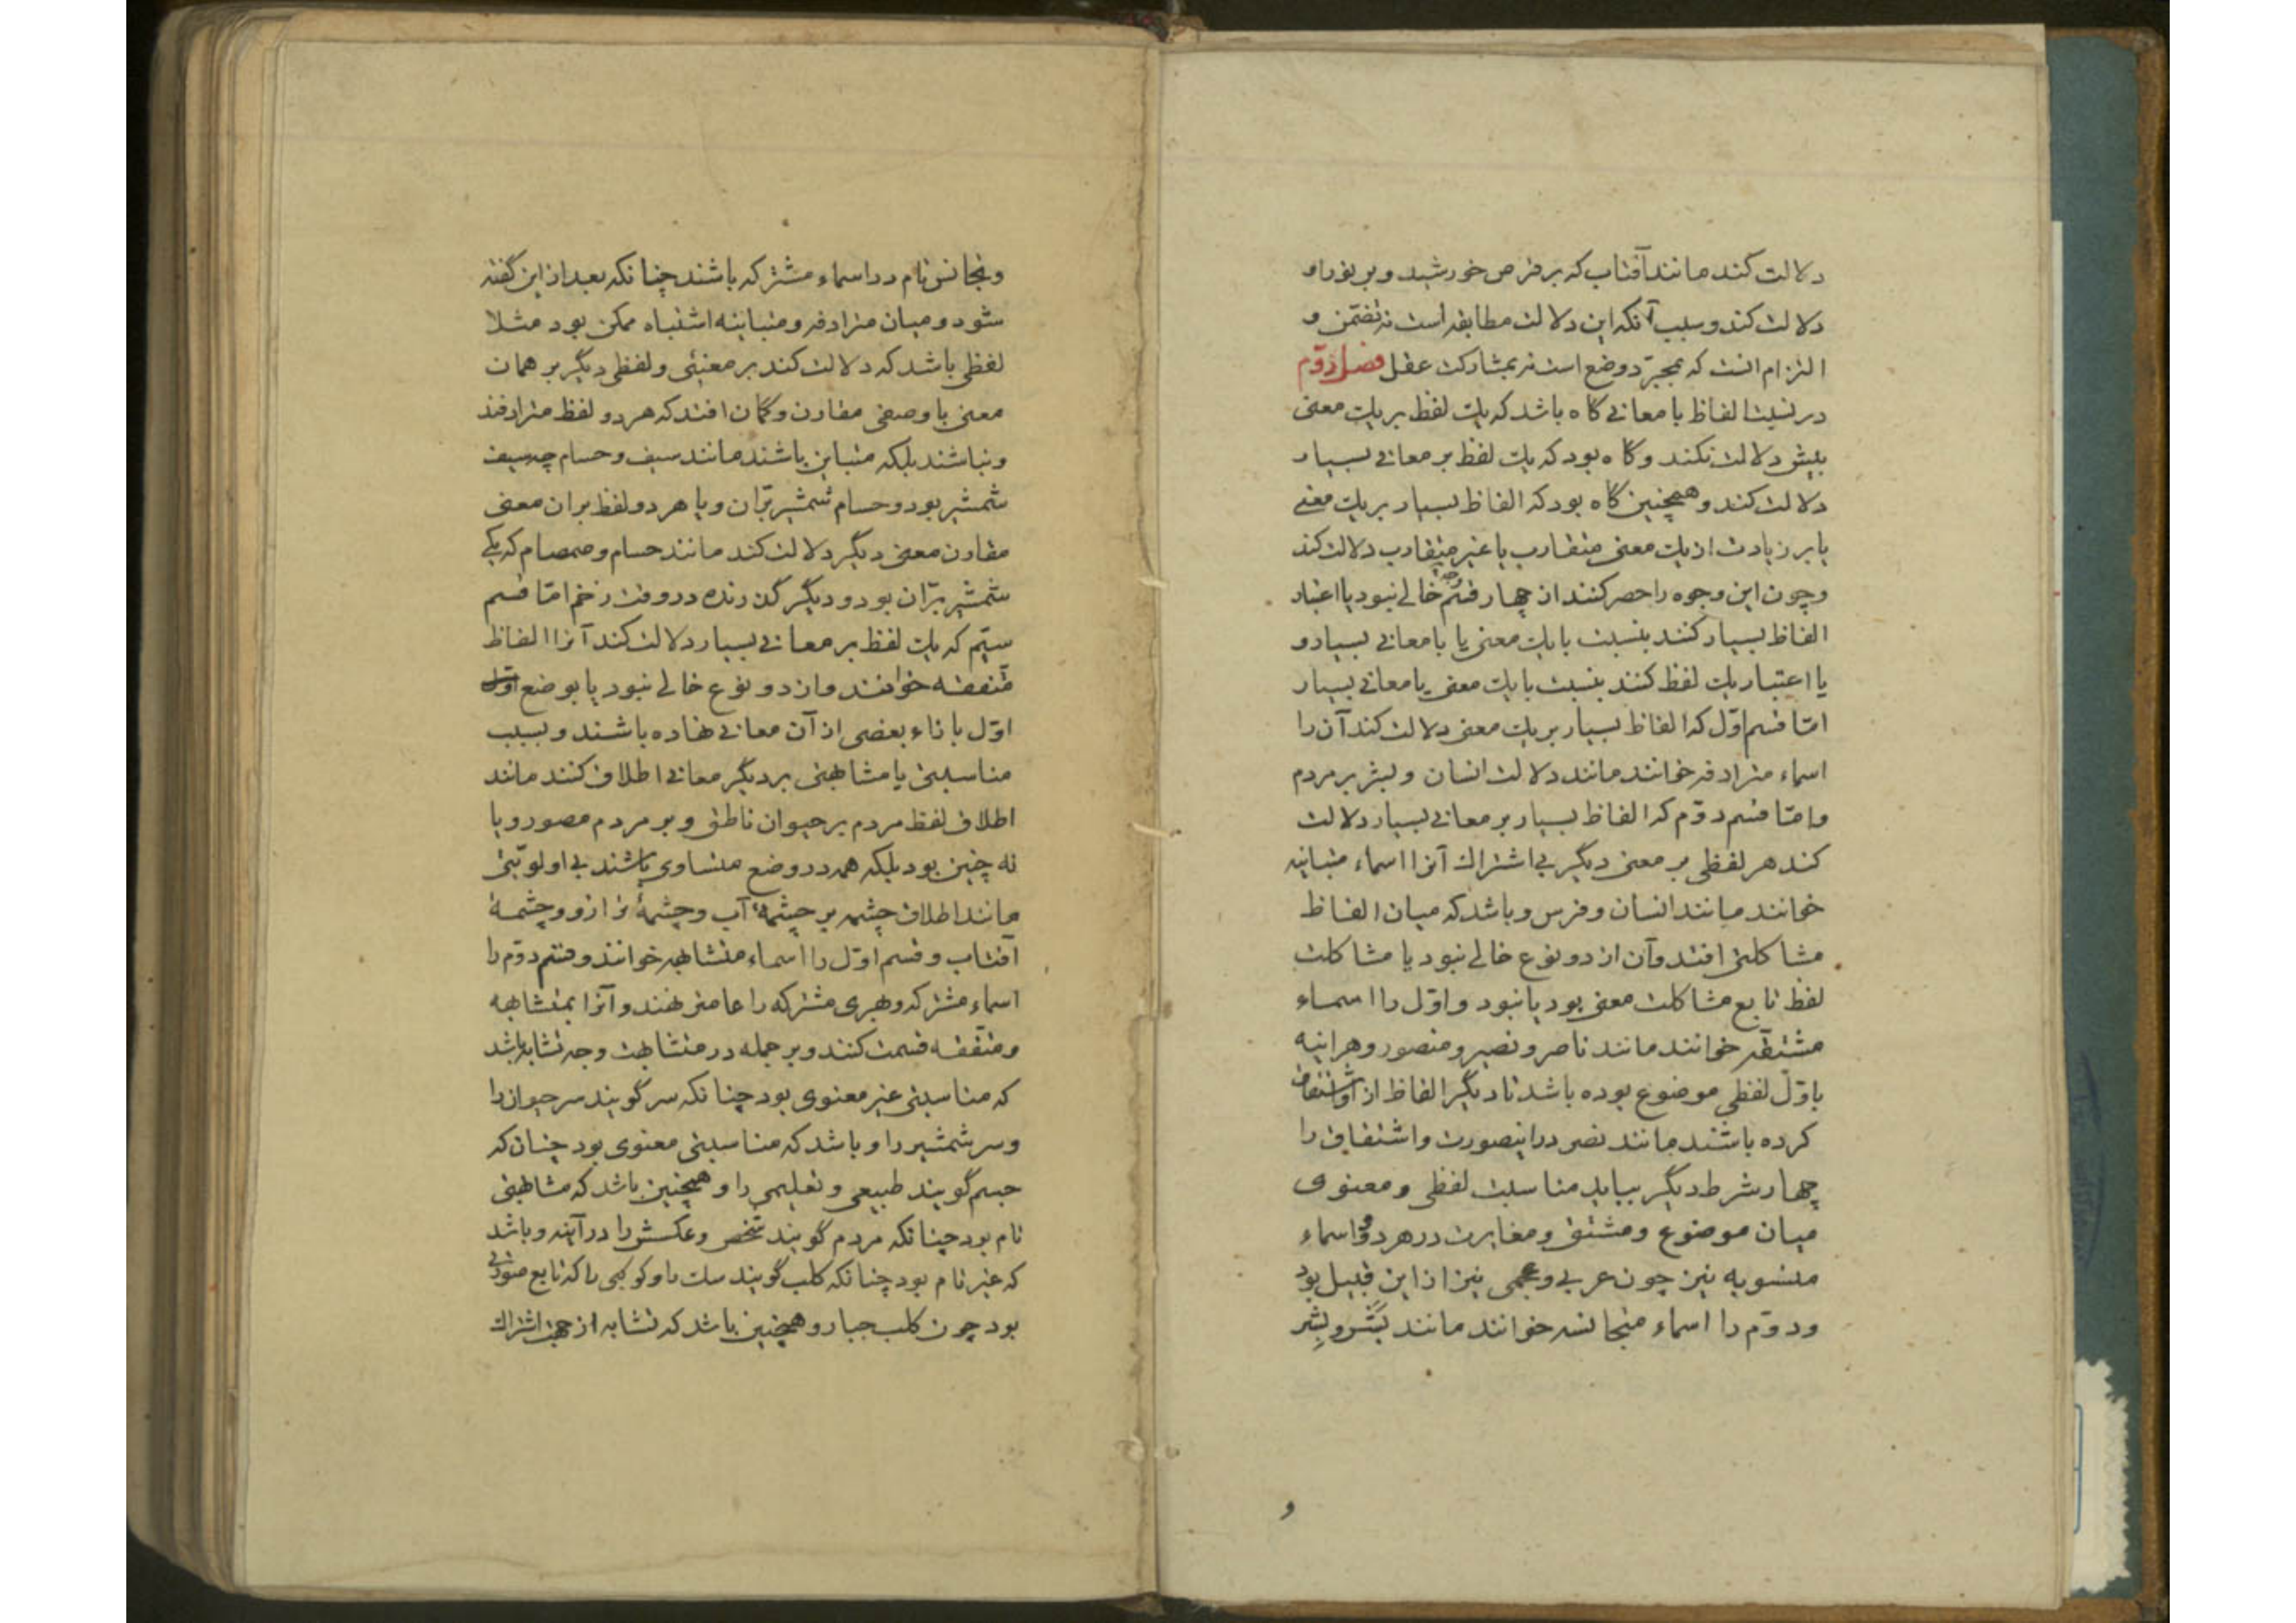 دلالت کند مانند آفتاب که بر قرص خورشید و بر نور او
دلالت کند و سبب آنکه این دلالت مطابقه است نه تضمن و
التزام انست که بمجرّد وضع است نه بمشارکت عقل فصل دوّم
در نسبت الفاظ با معانی گاه باشد که یک لفظ بر یک معنی
بیش دلالت نکند و گاه بود که یک لفظ بر معانی بسیار
دلالت کند و همچنین گاه بود که الفاظ بسیار بر یک معنی
یا بر زیادت از یک معنی متقارب یا غیر متقارب دلالت کند
و چون این وجوه را حصر کنند از چهار قسم خالی نبود یا اعتبار
الفاظ بسیار کنند بنسبت با یک معنی یا با معانی بسیار و
یا اعتبار یک لفظ کنند بنسبت با یک معنی یا معانی بسیار
امّا قسم اوّل که الفاظ بسیار بر یک معنی دلالت کند آن را
اسماء مترادفه خوانند مانند دلالت انسان و بشر بر مردم
و امّا قسم دوّم که الفاظ بسیار بر معانی بسیار دلالت
کند هر لفظی بر معنی دیگر بی اشتراک آنرا اسماء متباینه
خوانند مانند انسان و فرس و باشد که میان الفاظ
مشاکلتی افتد و آن از دو نوع خالی نبود یا مشاکلت
لفظ تابع مشاکلت معنی بود یا نبود و اوّل را اسماء
مشتقّه خوانند مانند ناصر و نصیر و منصور و هراینه
باوّل لفظی موضوع بوده باشد تا دیگر الفاظ از او اشتقاق
کرده باشند مانند نصر در اینصورت و اشتقاق را
چهار شرط دیگر بباید مناسبت لفظی و معنوی
میان موضوع و مشتق و مغایرت در هر دو و اسماء
منسوبه نیز چون عربی و عجمی نیز از این قبیل بود
و دوّم را اسماء متجانسه خوانند مانند بَشَر و بِشر
و
و تجانس نام در اسماء مشترکه باشند چنانکه بعد از این گفته
شود و میان مترادفه و متباینه اشتباه ممکن بود مثلا
لفظی باشد که دلالت کند بر معنیئی و لفظی دیگر بر همان
معنی با وصفی مقارن و گمان افتد که هر دو لفظ مترادفند
و نباشند بلکه متباین باشند مانند سیف و حسام چه سیف
شمشیر بود و حسام شمشیر برّان و یا هر دو لفظ بران معنی
مقارن معنی دیگر دلالت کند مانند حسام و صمصام که یکی
شمشیر برّان بود و دیگر گذرنده در وقت زخم امّا قسم
سیّم که یک لفظ بر معانی بسیار دلالت کند آنرا الفاظ
متفقه خوانند و از دو نوع خالی نبود یا بوضع اوّل
اوّل بازاء بعضی از آن معانی نهاده باشند و بسبب
مناسبتی یا مشابهتی بر دیگر معانی اطلاق کنند مانند
اطلاق لفظ مردم بر حیوان ناطق و بر مردم مصور و یا
نه چنین بود بلکه همه در وضع متساوی باشند بی اولویّتی
مانند اطلاق چشمه بر چشمهٔ آب و چشمهٔ ترازو و چشمهٔ
آفتاب و قسم اوّل را اسماء متشابهه خوانند و قسم دوّم را
اسماء مشترکه و بهری مشترکه را عامتر نهند و آنرا بمتشابهه
و متّفقه قسمت کنند و بر جمله در متشابهت وجه تشابه باشد
که مناسبتی غیر معنوی بود چنانکه سر گویند سر حیوان را
و سر شمشیر را و باشد که مناسبتی معنوی بود چنان که
جسم گویند طبیعی و تعلیمی را و همچنین باشد که مشابهتی
تام بود چنانکه مردم گویند شخص و عکسش را در آینه و باشد
که غیر تام بود چنانکه کلب گویند سک را و کوکبی را که تابع صورتی
بود چون کلب جبار و همچنین باشد که تشابه از جهت اشتراک